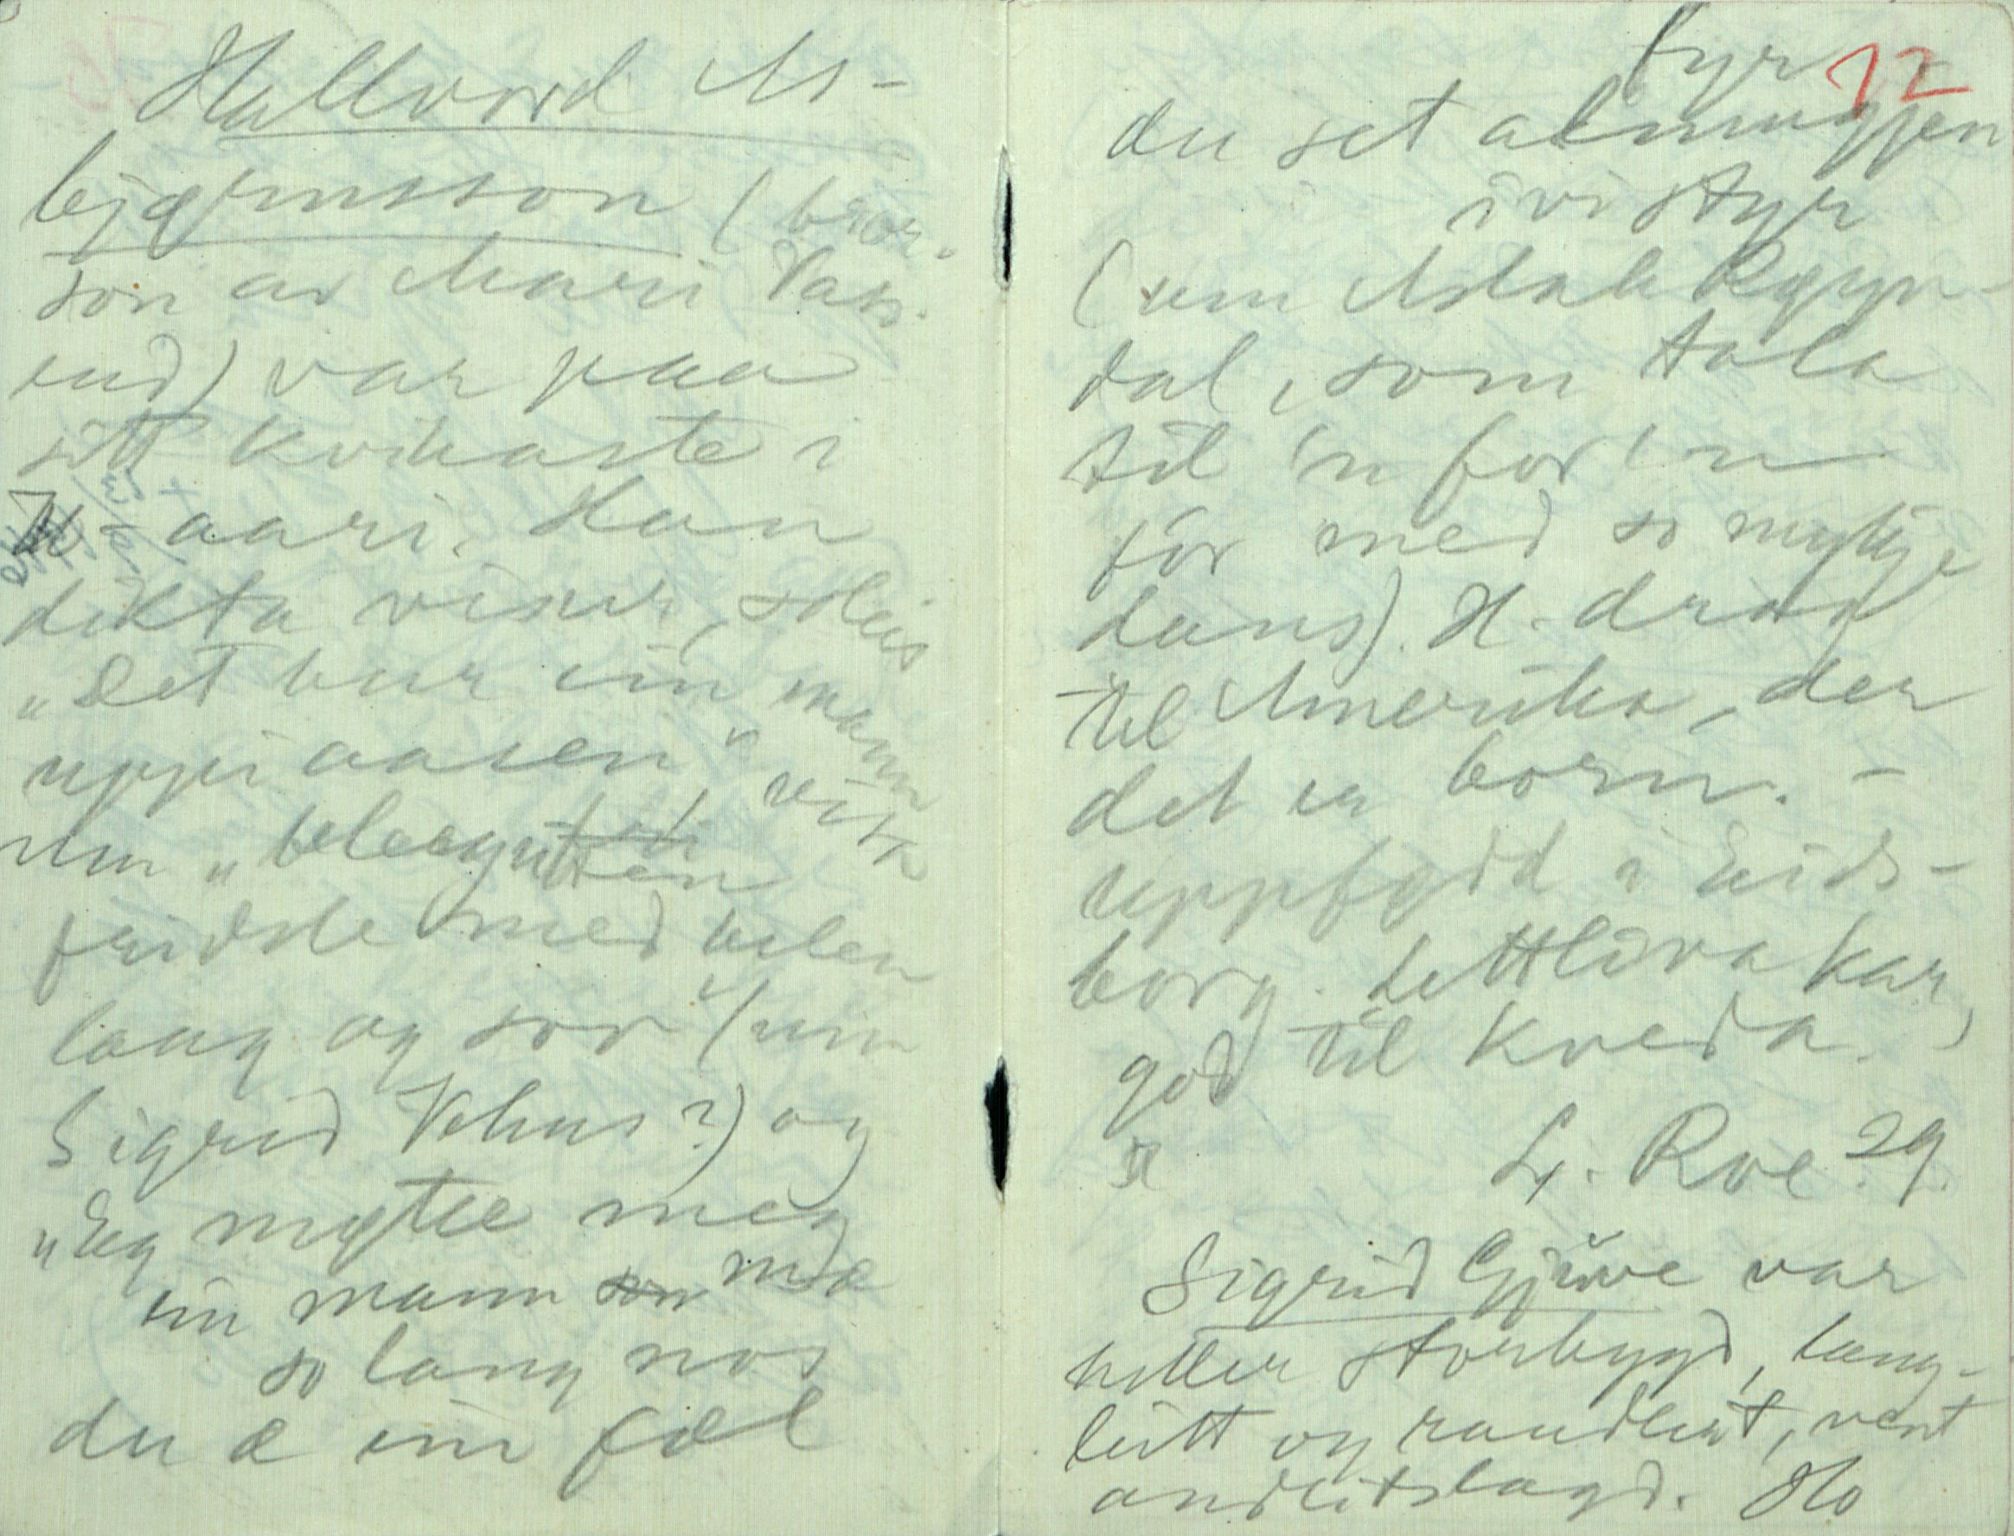 Hallvord As-
bjørnsson (bror-
son av Mari Vass
end) var paa
sitt kvikaste i
aari. Han
dikta viser, soleis
"Det bur ein mann
uppi aasen" visa
um "belegutten
fridde med belen
lang og sov" (um
Sigrid Vehus?) og
"Eg møtte meg
ein mann mæ
so lang nos
du æ ein fæl
fyr
12
du set almugjen
ivi styr
(um Aslak Røyn-
dal, som tala
til 'n for 'n
for med so mykje
dans). H. drog
til Amerika, der
det er born. -
uppfødd i Eids-
borg. Lettliva kar,
god til kveda.
L. Roe 29.
Sigrid Gjuve var
heller storbygd, lang-
leitt og raudleitt, vent
andlitslagd. Ho